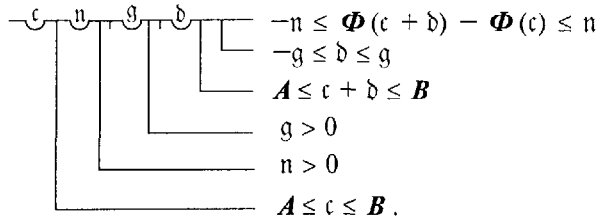 𝔠 𝔫 𝔤 𝔡 −𝔫 ≤ Φ(𝔠 + 𝔡) − Φ(𝔠) ≤ 𝔫
−𝔤 ≤ 𝔡 ≤ 𝔤
A ≤ 𝔠 + 𝔡 ≤ B
𝔤 > 0
𝔫 > 0
A ≤ 𝔠 ≤ B .